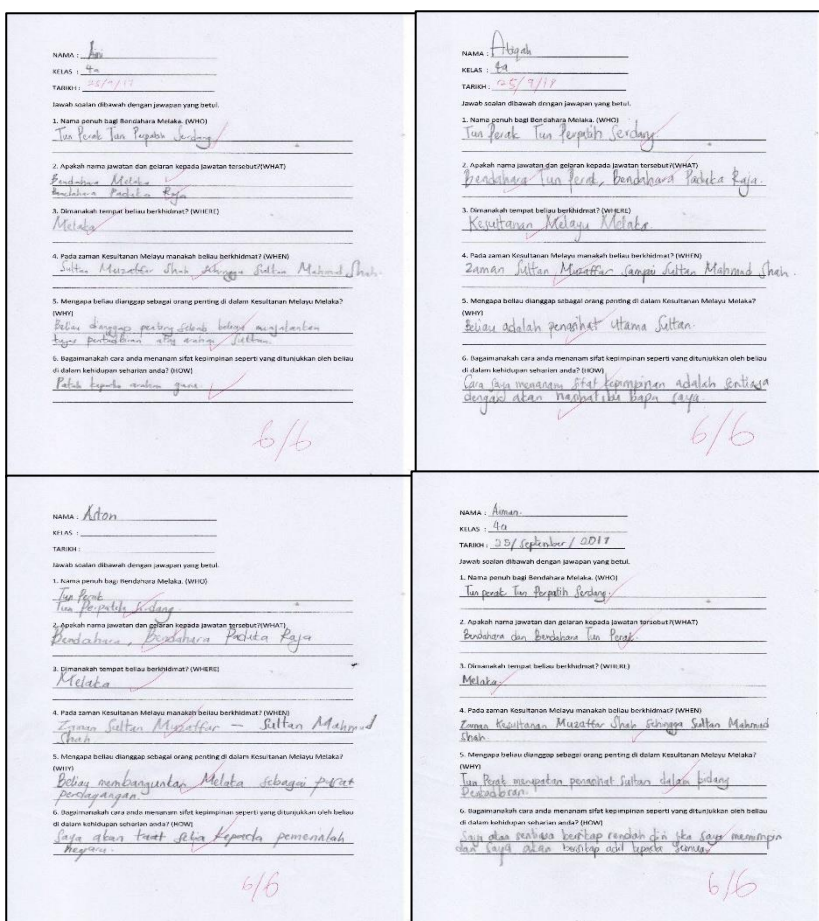 NAMA : Aini
KELAS : 4a
TARIKH : 25/9/17
Jawab soalan dibawah dengan jawapan yang betul.
1. Nama penuh bagi Bendahara Melaka. (WHO)
Tun Perak Tun Perpatih Serdang
2. Apakah nama jawatan dan gelaran kepada jawatan tersebut?(WHAT)
Bendahara Melaka
Bendahara Paduka Raja
3. Dimanakah tempat beliau berkhidmat? (WHERE)
Melaka
4. Pada zaman Kesultanan Melayu manakah beliau berkhidmat? (WHEN)
Sultan Muzaffar Shah sehingga Sultan Mahmud Shah.
5. Mengapa beliau dianggap sebagai orang penting di dalam Kesultanan Melayu Melaka?
(WHY)
Beliau dianggap penting sebab beliau menjalankan
tugas pentadbiran atas arahan Sultan.
6. Bagaimanakah cara anda menanam sifat kepimpinan seperti yang ditunjukkan oleh beliau
di dalam kehidupan seharian anda? (HOW)
Patuh kepada arahan guru.
6/6
NAMA : Atiqah
KELAS : 4a
TARIKH : 25/9/17
Jawab soalan dibawah dengan jawapan yang betul.
1. Nama penuh bagi Bendahara Melaka. (WHO)
Tun Perak Tun Perpatih Serdang
2. Apakah nama jawatan dan gelaran kepada jawatan tersebut?(WHAT)
Bendahara Tun Perak, Bendahara Paduka Raja.
3. Dimanakah tempat beliau berkhidmat? (WHERE)
Kesultanan Melayu Melaka.
4. Pada zaman Kesultanan Melayu manakah beliau berkhidmat? (WHEN)
Zaman Sultan Muzaffar sampai Sultan Mahmud Shah.
5. Mengapa beliau dianggap sebagai orang penting di dalam Kesultanan Melayu Melaka?
(WHY)
Beliau adalah penasihat utama Sultan.
6. Bagaimanakah cara anda menanam sifat kepimpinan seperti yang ditunjukkan oleh beliau
di dalam kehidupan seharian anda? (HOW)
Cara saya menanam sifat kepimpinan adalah sentiasa
dengar akan nasihat ibu bapa saya.
6/6
NAMA : Aston
KELAS :
TARIKH :
Jawab soalan dibawah dengan jawapan yang betul.
1. Nama penuh bagi Bendahara Melaka. (WHO)
Tun Perak
Tun Perpatih
2. Apakah nama jawatan dan gelaran kepada jawatan tersebut?(WHAT)
Bendahara, Bendahara Paduka Raja
3. Dimanakah tempat beliau berkhidmat? (WHERE)
Melaka
4. Pada zaman Kesultanan Melayu manakah beliau berkhidmat? (WHEN)
Zaman Sultan Muzaffar — Sultan Mahmud
Shah
5. Mengapa beliau dianggap sebagai orang penting di dalam Kesultanan Melayu Melaka?
(WHY)
Beliau membangunkan Melaka sebagai pusat
perdagangan.
6. Bagaimanakah cara anda menanam sifat kepimpinan seperti yang ditunjukkan oleh beliau
di dalam kehidupan seharian anda? (HOW)
Saya akan taat setia kepada pemerintah
negara.
6/6
NAMA : Aiman.
KELAS : 4a
TARIKH : 25/September/2017
Jawab soalan dibawah dengan jawapan yang betul.
1. Nama penuh bagi Bendahara Melaka. (WHO)
Tun perak Tun Perpatih Serdang.
2. Apakah nama jawatan dan gelaran kepada jawatan tersebut?(WHAT)
Bendahara dan Bendahara Tun Perak.
3. Dimanakah tempat beliau berkhidmat? (WHERE)
Melaka.
4. Pada zaman Kesultanan Melayu manakah beliau berkhidmat? (WHEN)
Zaman Kesultanan Muzaffar Shah sehingga Sultan Mahmud
Shah.
5. Mengapa beliau dianggap sebagai orang penting di dalam Kesultanan Melayu Melaka?
(WHY)
Tun Perak merupakan penasihat Sultan dalam bidang
Pentadbiran.
6. Bagaimanakah cara anda menanam sifat kepimpinan seperti yang ditunjukkan oleh beliau
di dalam kehidupan seharian anda? (HOW)
Saya akan sentiasa bersikap rendah diri jika saya memimpin
dan saya akan bersikap adil kepada semua.
6/6